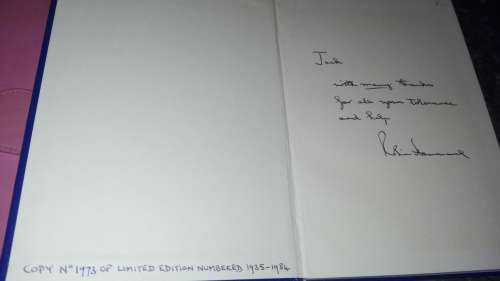 Jack
with many thanks
for all your tolerance
and help
COPY Nº 1973 OF LIMITED EDITION NUMBERED 1935-1984